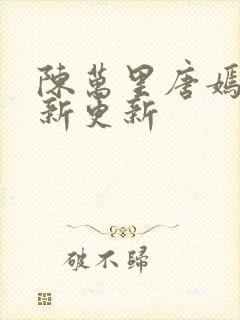 陳萬里唐嫣
新更新
破不歸